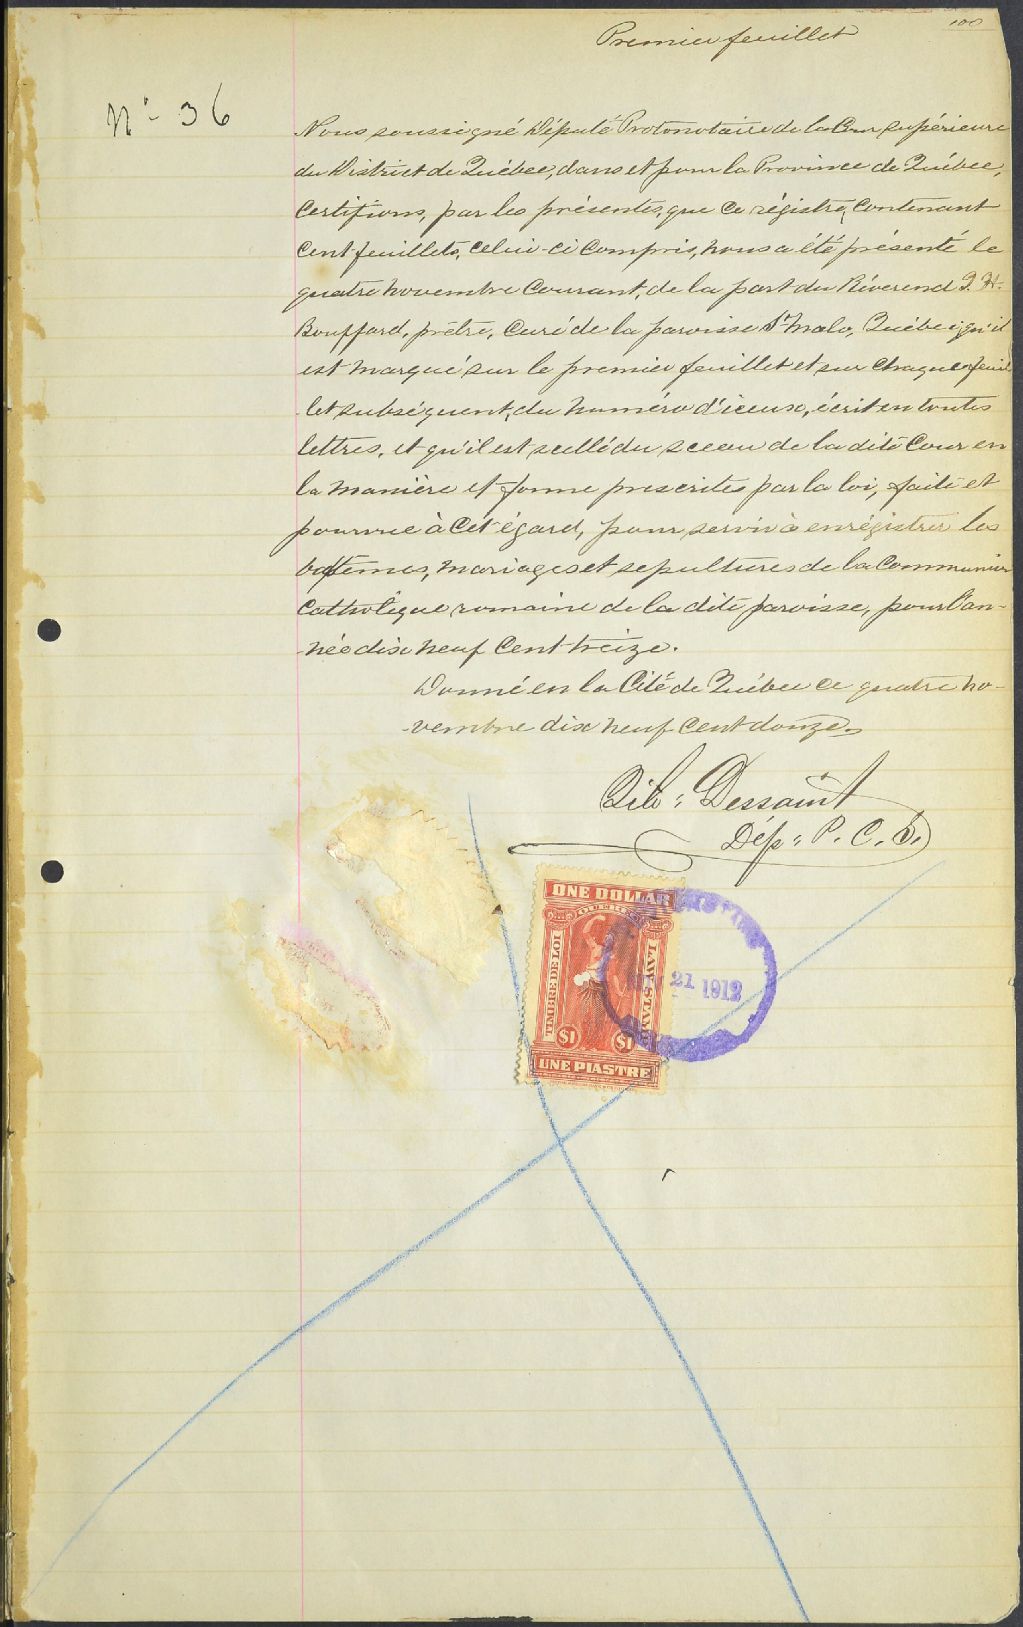 100
Premier feuillet
No 36
Nous soussigné Député Protonotaire de la Cour supérieure
du District de Québec, dans et pour la Province de Québec,
Certifions, par les présentes, que ce régistre, contenant
Cent feuillets, celui-ci compris, nous a été présenté le
quatre novembre Courant, de la part du Révérend
Bouffard, prêtre, Curé de la paroisse St Malo, Québec; qu'il
est marqué sur le premier feuillet et sur chaque feuil
let subséquent, du numéro d'iceux, écrit en toutes
lettres, et qu'il est scellé du sceau de la dite Cour en
la manière et forme prescrites par la loi, faite et
pourvue à cet égard, pour servir à enrégistrer les
baptêmes, mariages et sépultures de la Communion
Catholique romaine de la dite paroisse, pour l'an-
née dix neuf Cent treize.
Donné en la Cité de Québec ce quatre no-
vembre dix neuf Cent douze.
Dessaint
Dép: P. C. S.
ONE DOLLAR
QUEBEC
TIMBRE DE LOI
LAW STAMP
$1 $1
UNE PIASTRE
21 1912